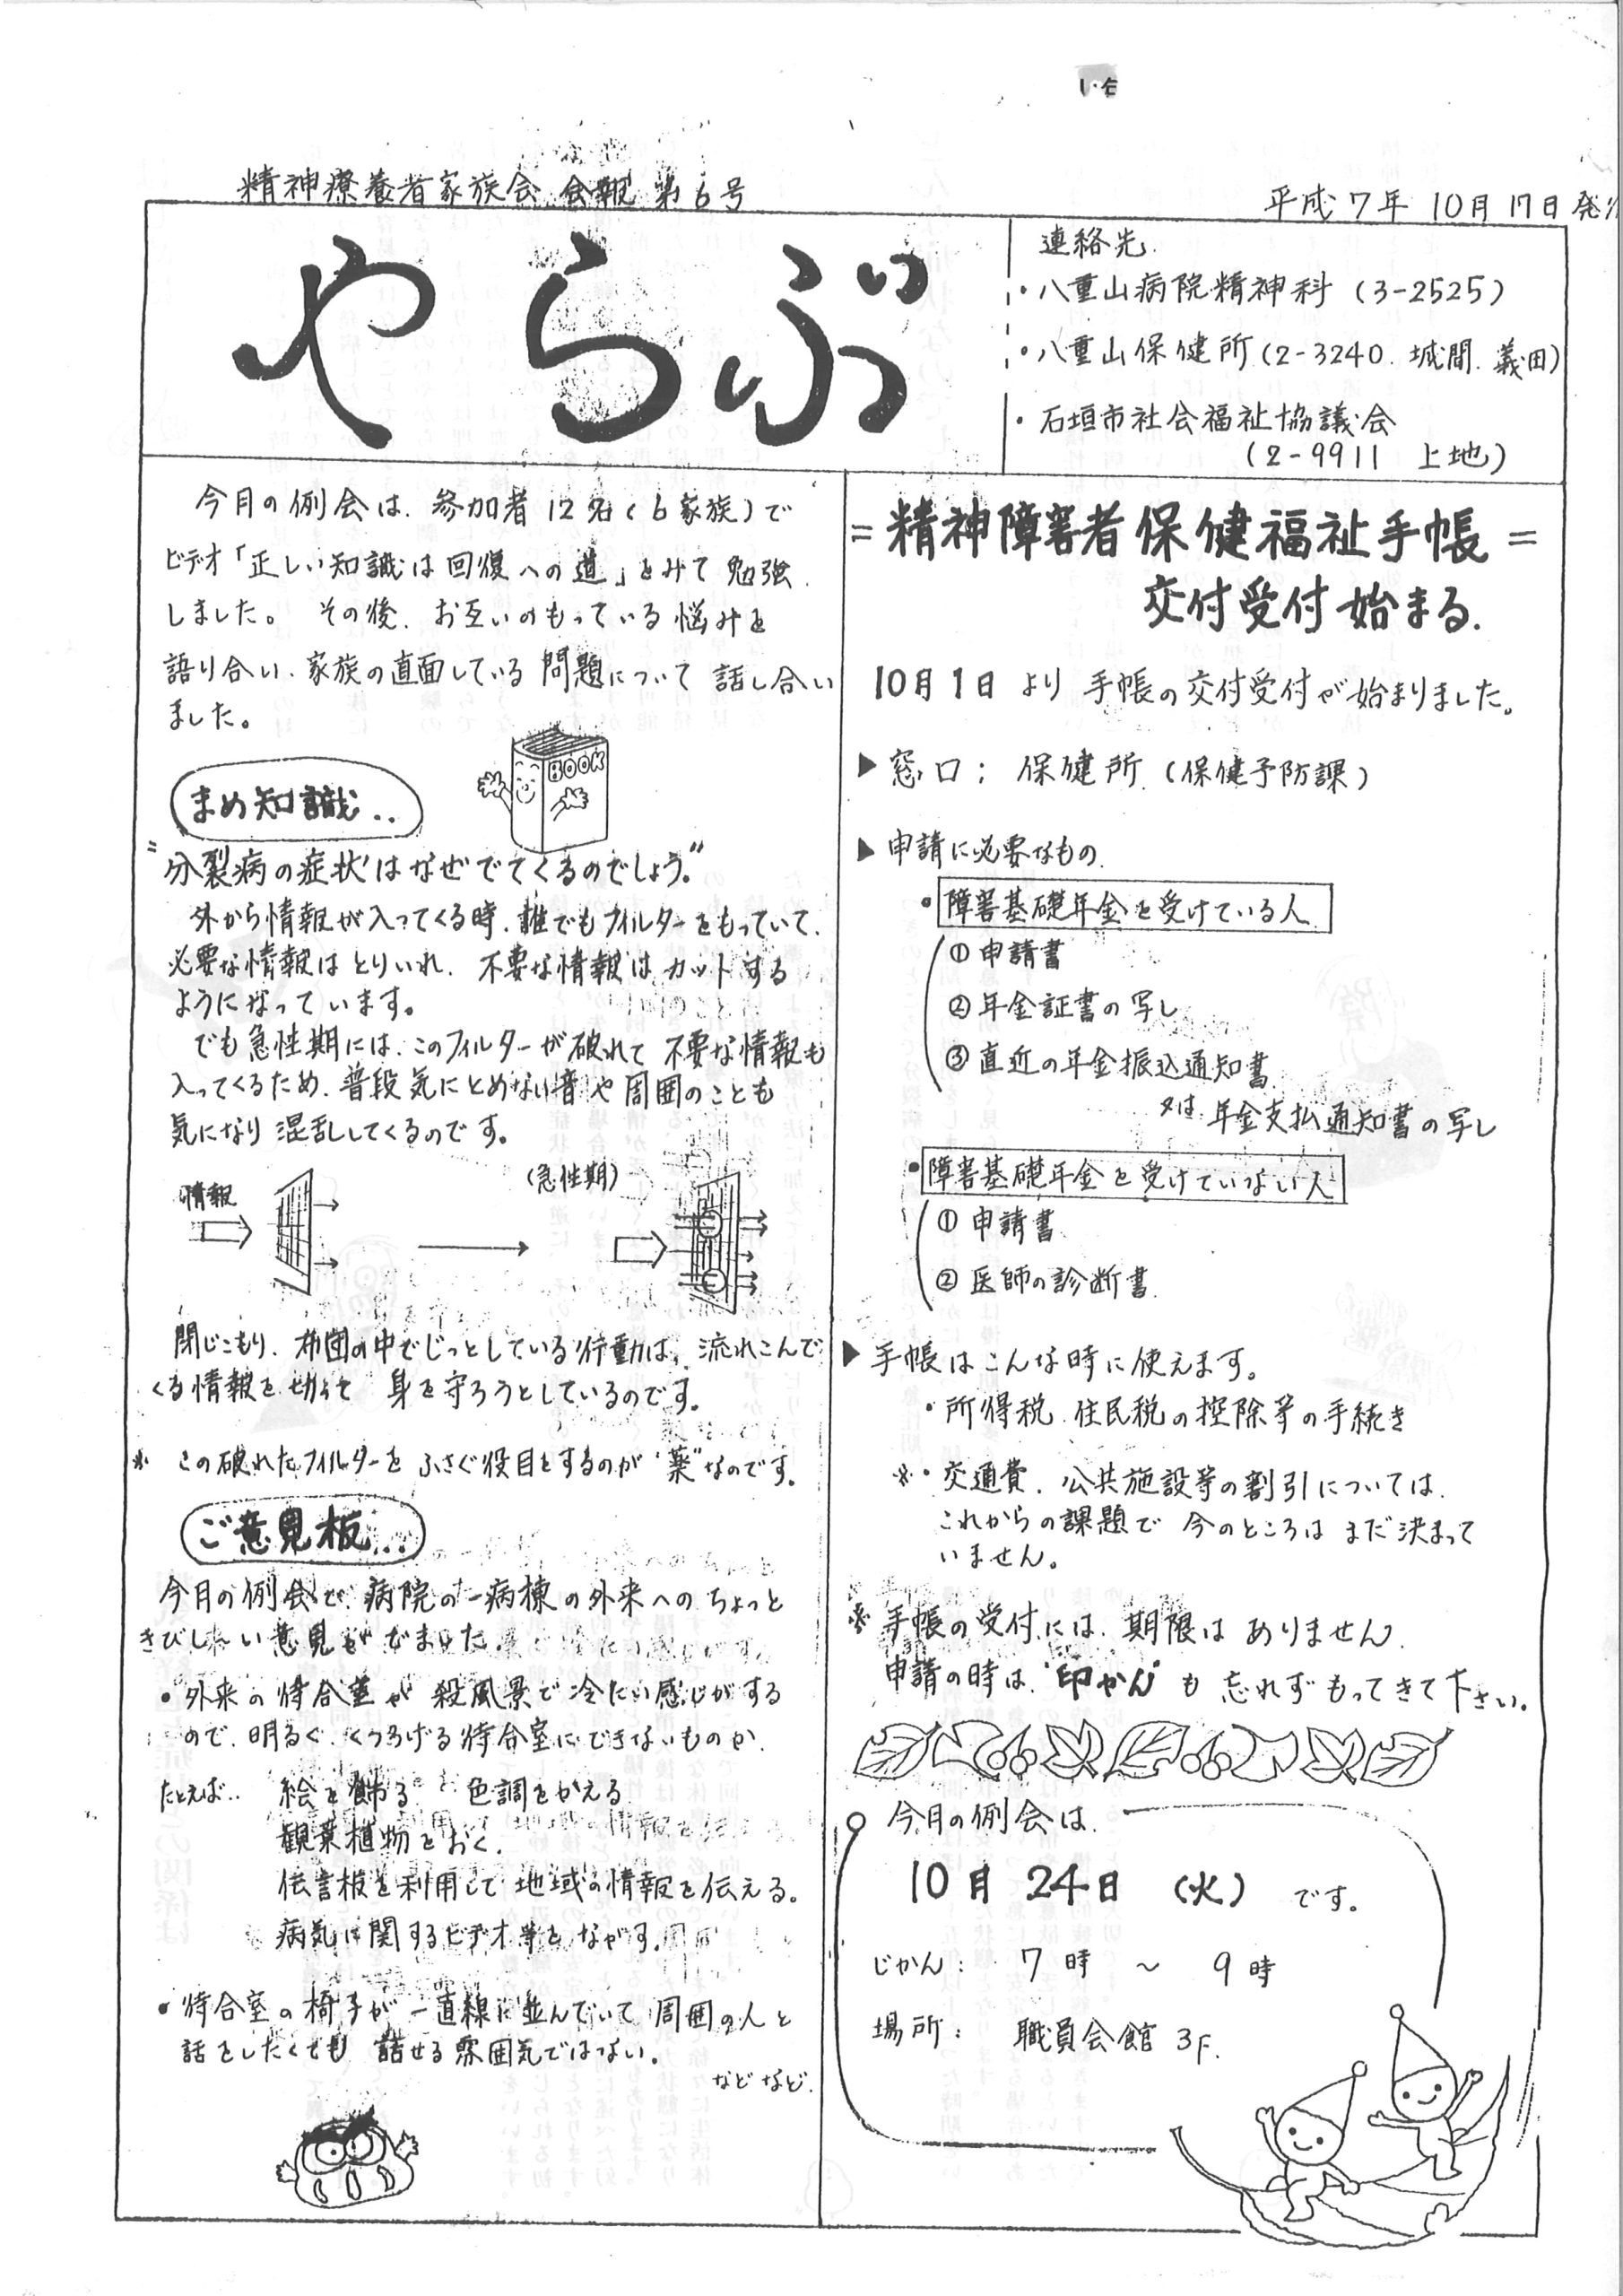 精神療養者家族会 会報 第6号
平成7年 10月17日 発
やらぶ
連絡先
・八重山病院精神科 (3-2525)
・八重山保健所 (2-3240. 城間. 義田)
・石垣市社会福祉協議会
(2-9911 上地)
今月の例会は、参加者12名(6家族)で
ビデオ「正しい知識は回復への道」をみて勉強
しました。 その後、お互いのもっている悩みを
語り合い、家族の直面している問題について話し合い
ました。
BOOK
まめ知識..
"分裂病の症状はなぜでてくるのでしょう"
外から情報が入ってくる時、誰でもフィルターをもっていて、
必要な情報はとりいれ、不要な情報はカットする
ようになっています。
でも急性期には、このフィルターが破れて不要な情報も
入ってくるため、普段気にとめない音や周囲のことも
気になり混乱してくるのです。
情報
(急性期)
閉じこもり、布団の中でじっとしている行動は、流れこんで
くる情報を切って 身を守ろうとしているのです。
※ この破れたフィルターをふさぐ役目をするのが"薬"なのです。
ご意見板...
今月の例会で、病院の一病棟の外来へのちょっと
きびしーい意見がでました。
・外来の待合室が殺風景で冷たい感じがする
ので、明るく、くつろげる待合室にできないものか、
たとえば.. 絵を飾る 色調をかえる
観葉植物をおく、
伝言板を利用して地域の情報を伝える。
病気に関するビデオ等をながす。
・待合室の椅子が一直線に並んでいて周囲の人と
話をしたくても 話せる雰囲気ではない。
などなど
= 精神障害者保健福祉手帳 =
交付受付始まる.
10月1日より手帳の交付受付が始まりました。
▶ 窓口: 保健所 (保健予防課)
▶ 申請に必要なもの
・障害基礎年金を受けている人
① 申請書
② 年金証書の写し
③ 直近の年金振込通知書
又は 年金支払通知書の写し
・障害基礎年金を受けていない人
① 申請書
② 医師の診断書
▶ 手帳はこんな時に使えます。
・所得税 住民税の控除等の手続き
※・交通費、公共施設等の割引については、
これからの課題で 今のところは まだ決まって
いません。
※ 手帳の受付には、期限は ありません.
申請の時は、"印かん" も 忘れずもってきて下さい。
今月の例会は、
10月 24日 (火) です。
じかん: 7時 ~ 9時
場所: 職員会館 3F.